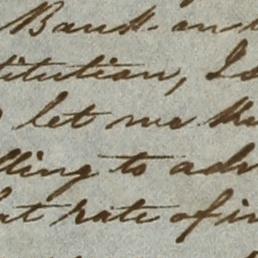 Bank and
titution, Is
let me kn
lling to adv
at rate of in